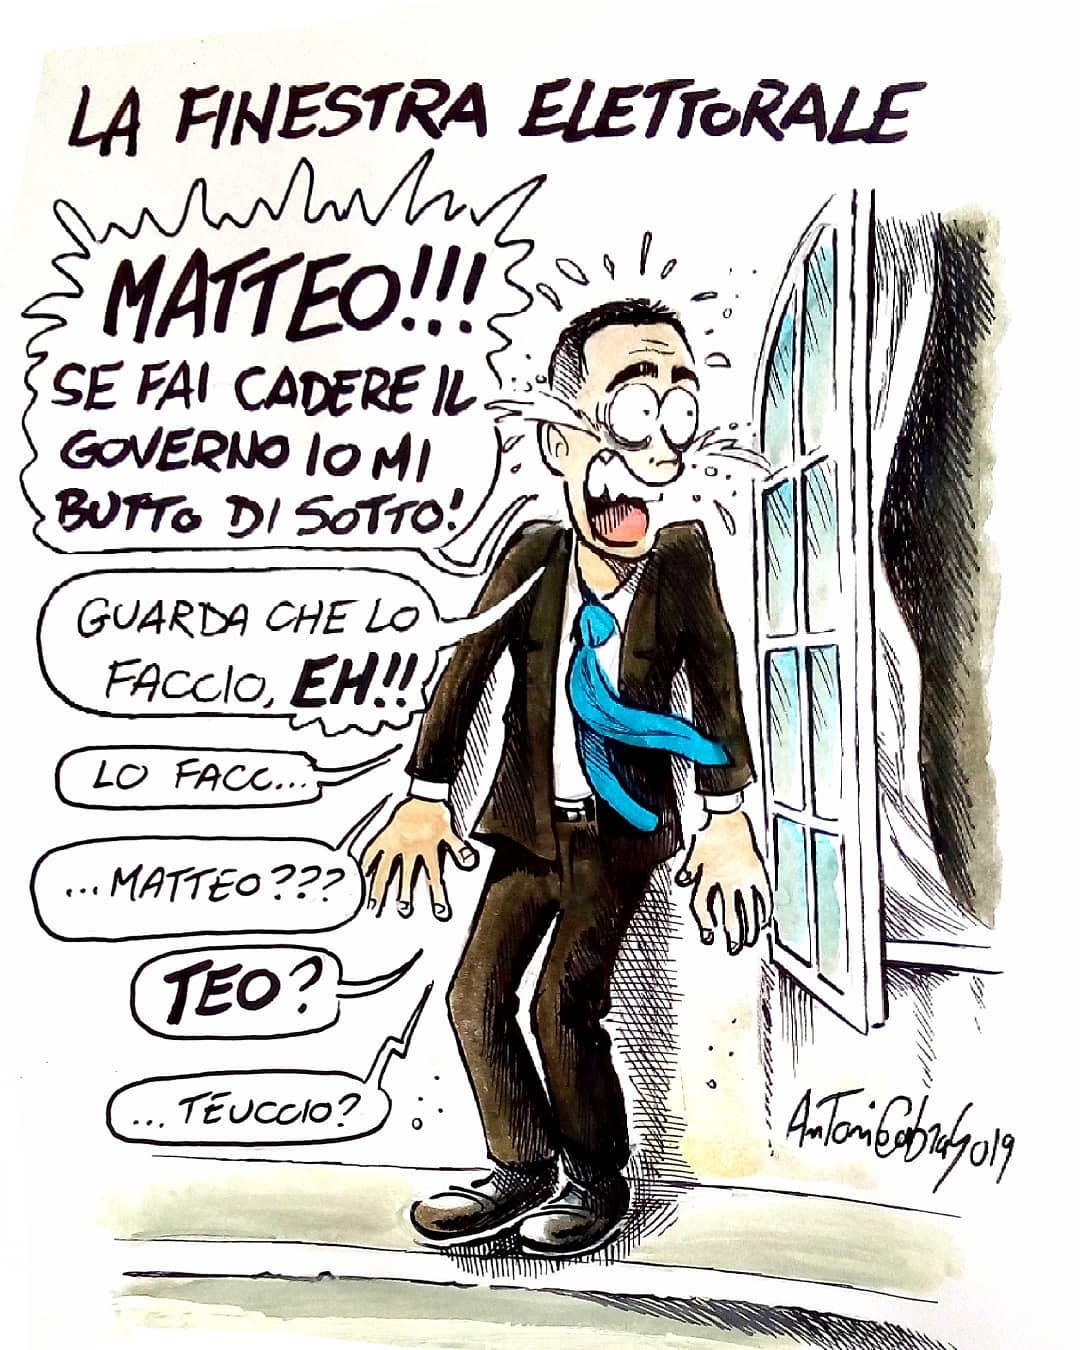 LA FINESTRA ELETTORALE
MATTEO!!!
SE FAI CADERE IL
GOVERNO IO MI
BUTTO DI SOTTO!
GUARDA CHE LO
FACCIO, EH!!
LO FACC...
...MATTEO???
TEO?
...TEUCCIO?